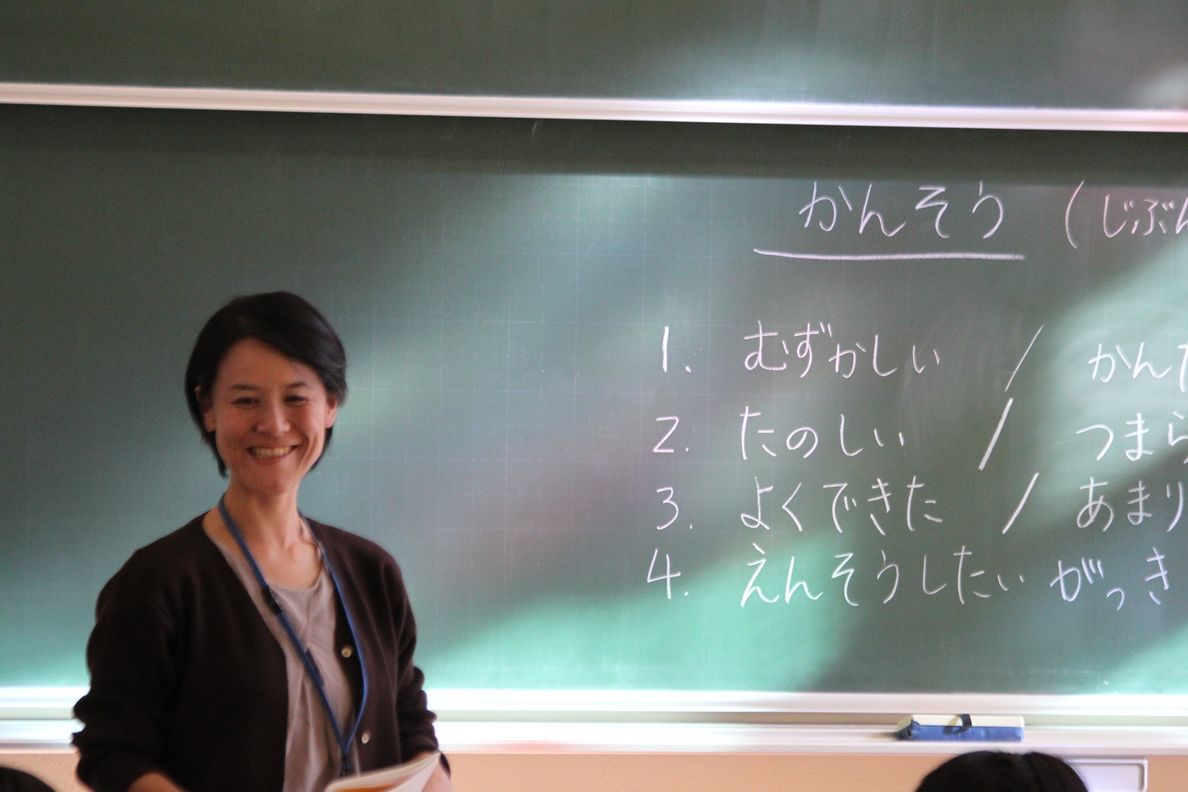 かんそう (じぶん
1. むずかしい / かんた
2. たのしい / つまら
3. よくできた / あまり
4. えんそうしたい がっき